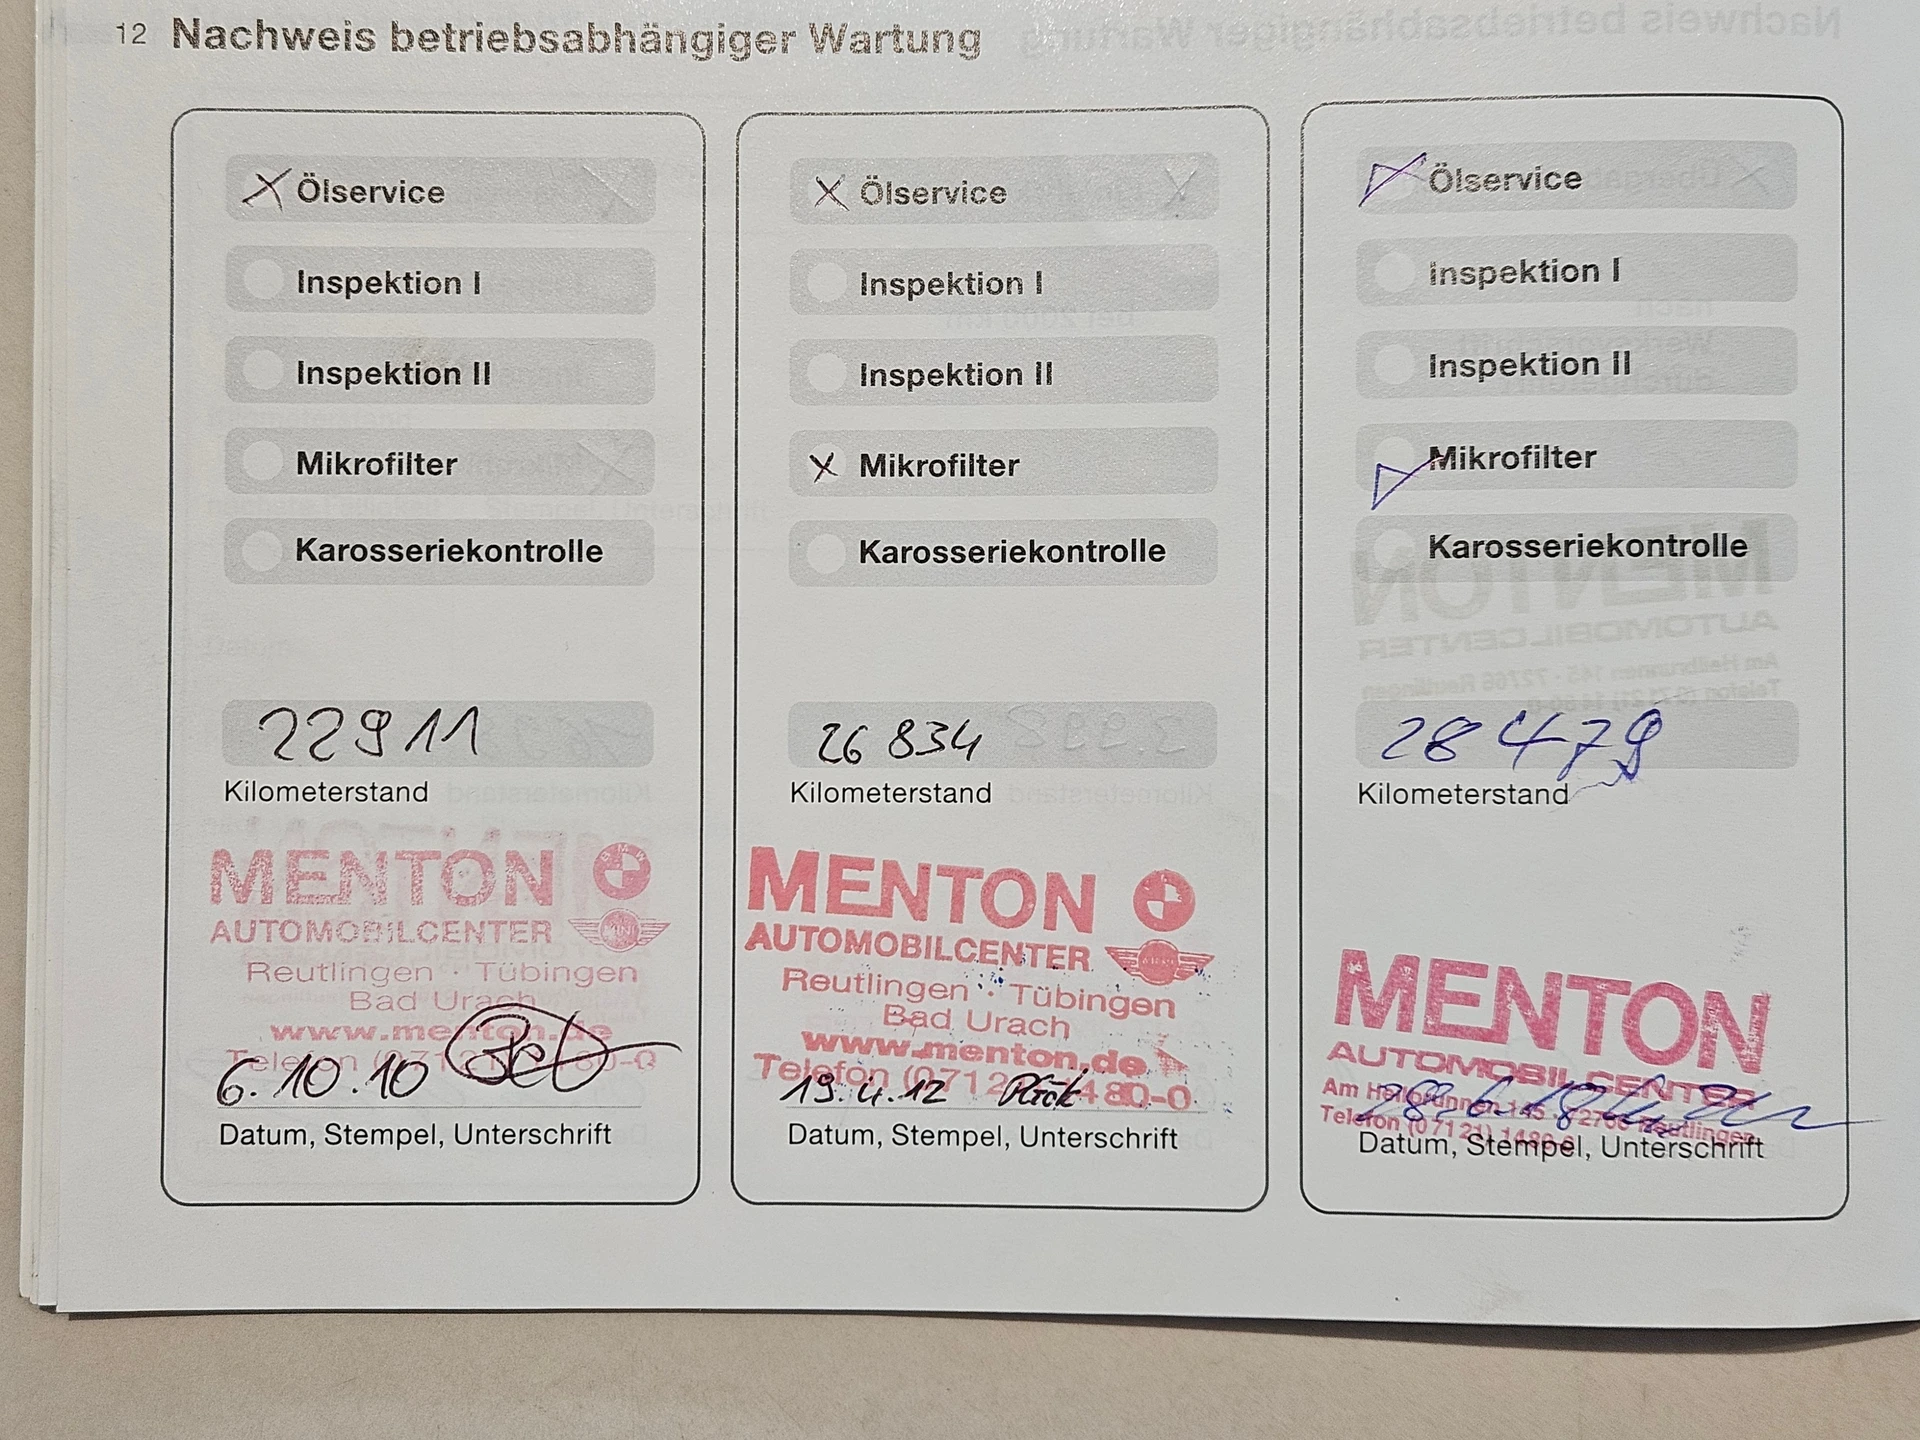 12 Nachweis betriebsabhängiger Wartung
Ölservice
Inspektion I
Inspektion II
Mikrofilter
Karosseriekontrolle
22911
Kilometerstand
MENTON BMW
AUTOMOBILCENTER MINI
Reutlingen · Tübingen
Bad Urach
www.menton.de
Telefon (07121) 1480-0
6.10.10
Datum, Stempel, Unterschrift
Ölservice
Inspektion I
Inspektion II
Mikrofilter
Karosseriekontrolle
26 834
Kilometerstand
MENTON
AUTOMOBILCENTER
Reutlingen · Tübingen
Bad Urach
www.menton.de
Telefon (07121) 1480-0
19.4.12
Datum, Stempel, Unterschrift
Ölservice
Inspektion I
Inspektion II
Mikrofilter
Karosseriekontrolle
28 479
Kilometerstand
MENTON
AUTOMOBILCENTER
Am Heilbrunnen 145 · 72766 Reutlingen
Telefon (07121) 1480-0
Datum, Stempel, Unterschrift